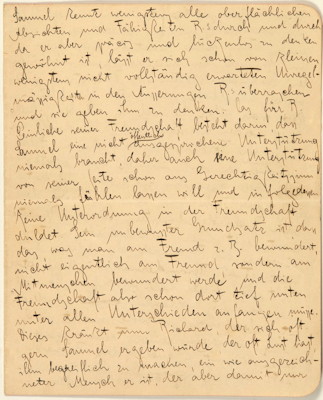 Samuel kennt wenigstens alle oberflächlichen
Absichten und Fähigkeiten R's durch und durch
da er aber präcis und lückenlos zu denken
gewohnt ist, läßt er sich schon von kleinen
wenigstens nicht vollständig erwarteten Unregel-
mäßigkeiten in den Äußerungen R's überraschen
und sie geben ihm zu denken. für R.
Peinliche seiner Freundschaft besteht darin daß
Samuel eine nicht öffentlich ausgesprochene Unterstützung
niemals braucht, daher auch eine Unterstützung
von seiner Seite schon aus Gerechtigkeit
niemals fühlen lassen will und infolgedessen
keine Unterordnung in der Freundschaft
duldet. Sein unbewußter Grundsatz ist daß
das, was man am Freund z. B. bewundert
nicht eigentlich am Freund, sondern am
Mitmenschen bewundert werde und die
Freundschaft also schon dort tief unten
unter allen Unterschieden anfangen müsse.
Dieses kränkt nun Richard, der sich oft
gern Samuel ergeben würde, der oft Lust hat
ihm begreiflich zu machen, ein wie ausgezeich-
neter Mensch er ist, der aber damit nur